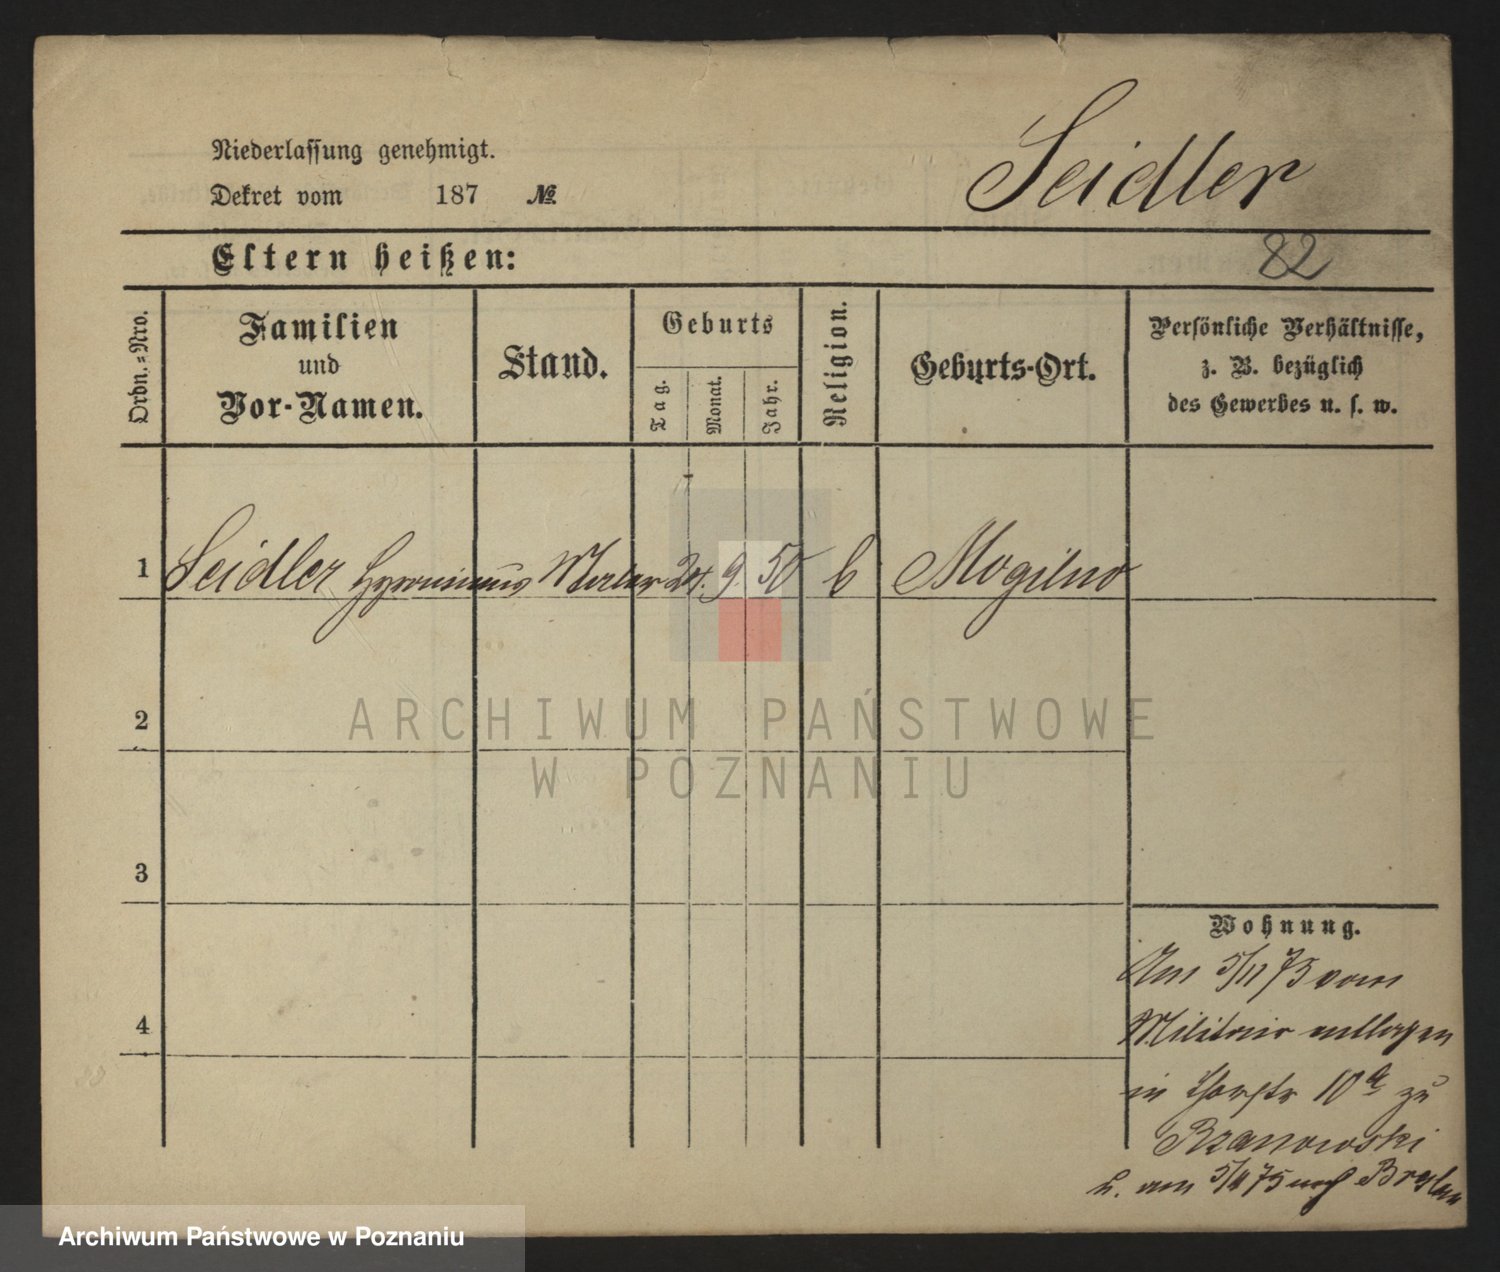 Seidler
Niederlassung genehmigt.
Dekret vom 187 №
Eltern heißen:
82
Ordn.=Nro.
Familien
und
Vor-Namen.
Stand.
Geburts
Tag.
Monat.
Jahr.
Religion.
Geburts-Ort.
Persönliche Verhältnisse,
z. B. bezüglich
des Gewerbes u. s. w.
1 Seidler Hyronimus Maler 24. 9. 50 Mogilno
2
3
4
ARCHIWUM PAŃSTWOWE
W POZNANIU
Wohnung.
Am 5/11 73 vom
Militair entlassen
in 10a zu
Rzanowski
u. am 5/4 75 nach Breslau
Archiwum Państwowe w Poznaniu